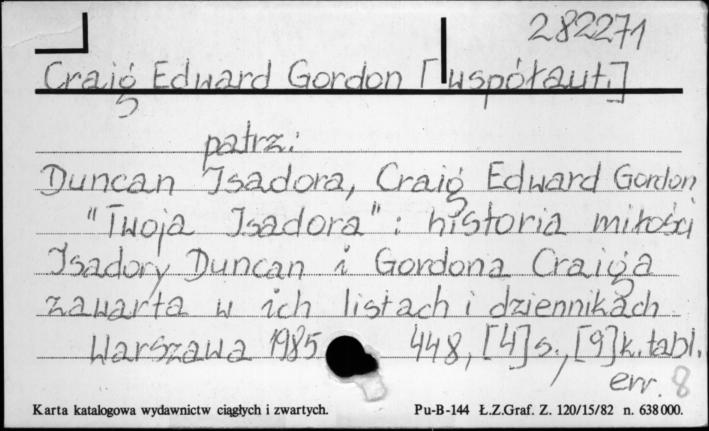 282271
Craig Edward Gordon [współaut.]
patrz:
Duncan Isadora, Craig Edward Gordon
"Twoja Isadora" : historia miłości
Isadory Duncan i Gordona Craiga
zawarta w ich listach i dziennikach
Warszawa 1985 448, [4] s., [9] k. tabl.
err. 8
Karta katalogowa wydawnictw ciągłych i zwartych. Pu-B-144 Ł.Z.Graf. Z. 120/15/82 n. 638000.